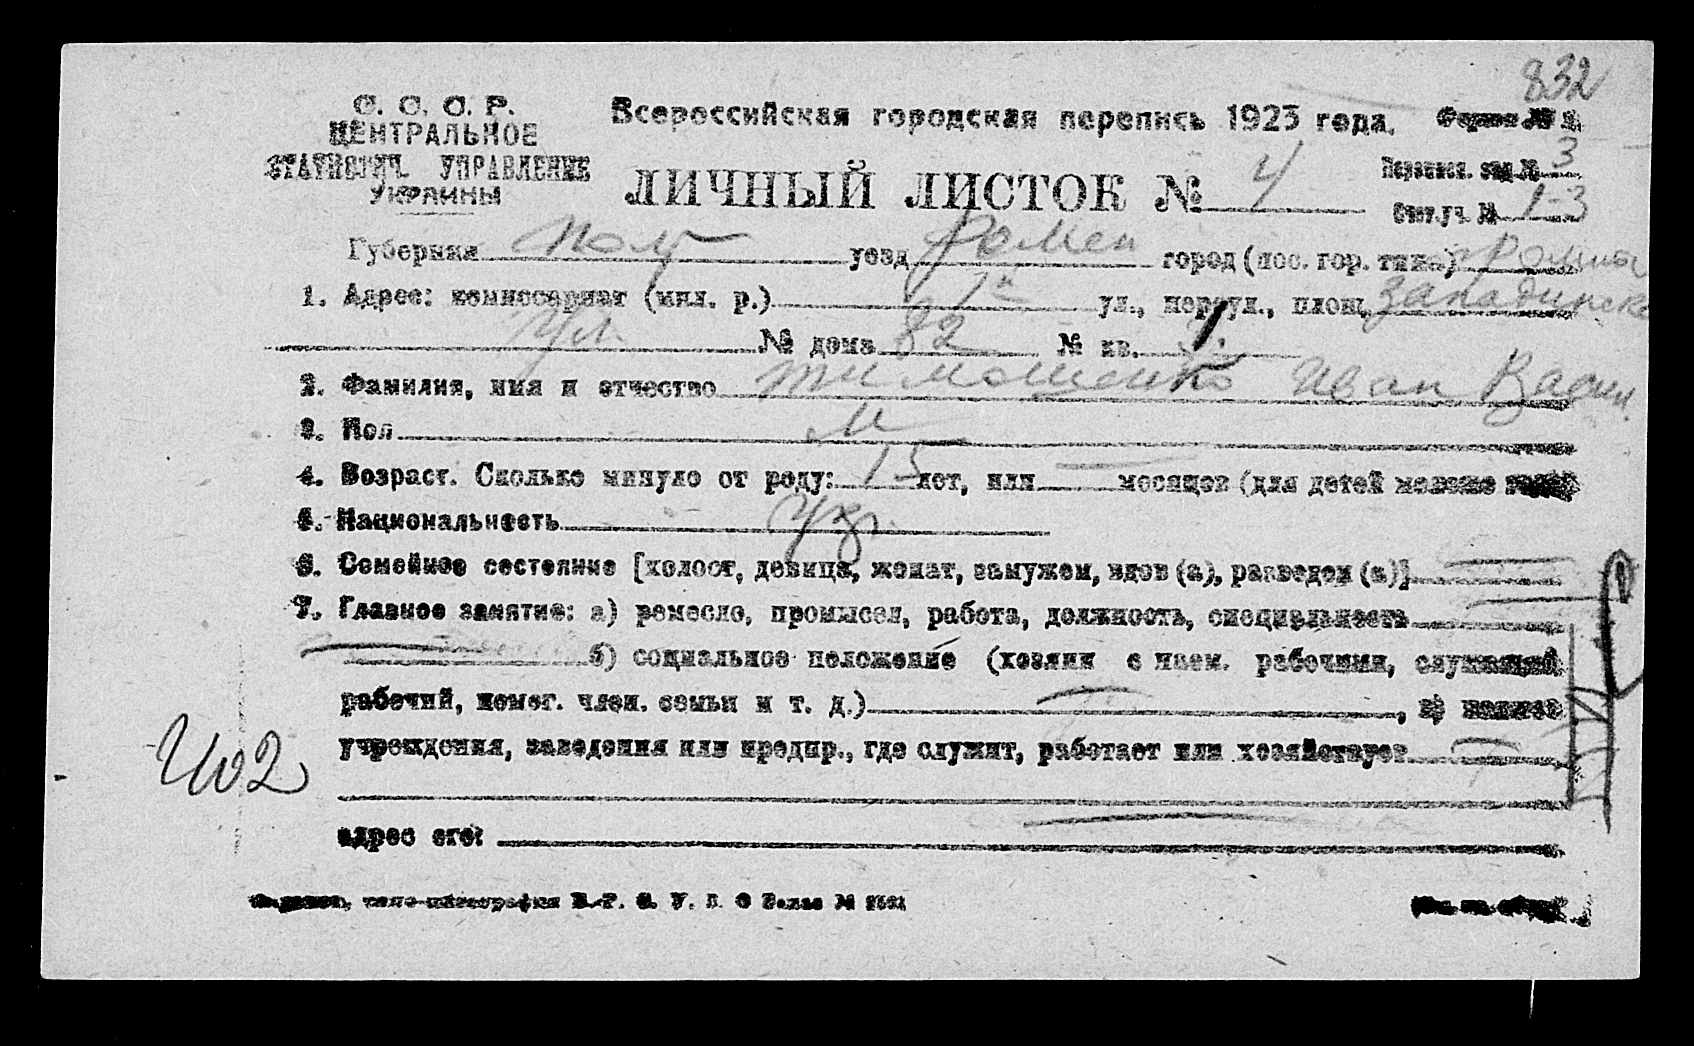 832
С. С. С. Р.
ЦЕНТРАЛЬНОЕ
СТАТИСТИЧ. УПРАВЛЕНИЕ
УКРАИНЫ
Всероссийская городская перепись 1923 года.
ЛИЧНЫЙ ЛИСТОК № 4
3
Счет. уч. № 1-3
Губерния Полт уезд Ромен город (пос. гор. типа) Ромны
1. Адрес: комиссариат (мил. р.) 1й ул., переул., площ.
ул. № дома 82 № кв. 1.
2. Фамилия, имя и отчество Тимошенко Иван Васил.
3. Пол М
4. Возраст. Сколько минуло от роду: 15 лет, или — месяцев (для детей моложе
5. Национальность Укр.
6. Семейное состояние [холост, девица, женат, замужем, вдов (а), разведен (а)]
7. Главное занятие: а) ремесло, промысел, работа, должность, специальность
б) социальное положение (хозяин с наем. рабочими, служащий
рабочий, помог. член. семьи и т. д.) —, в)
учреждения, заведения или предпр., где служит, работает или хозяйствует —
адрес его: